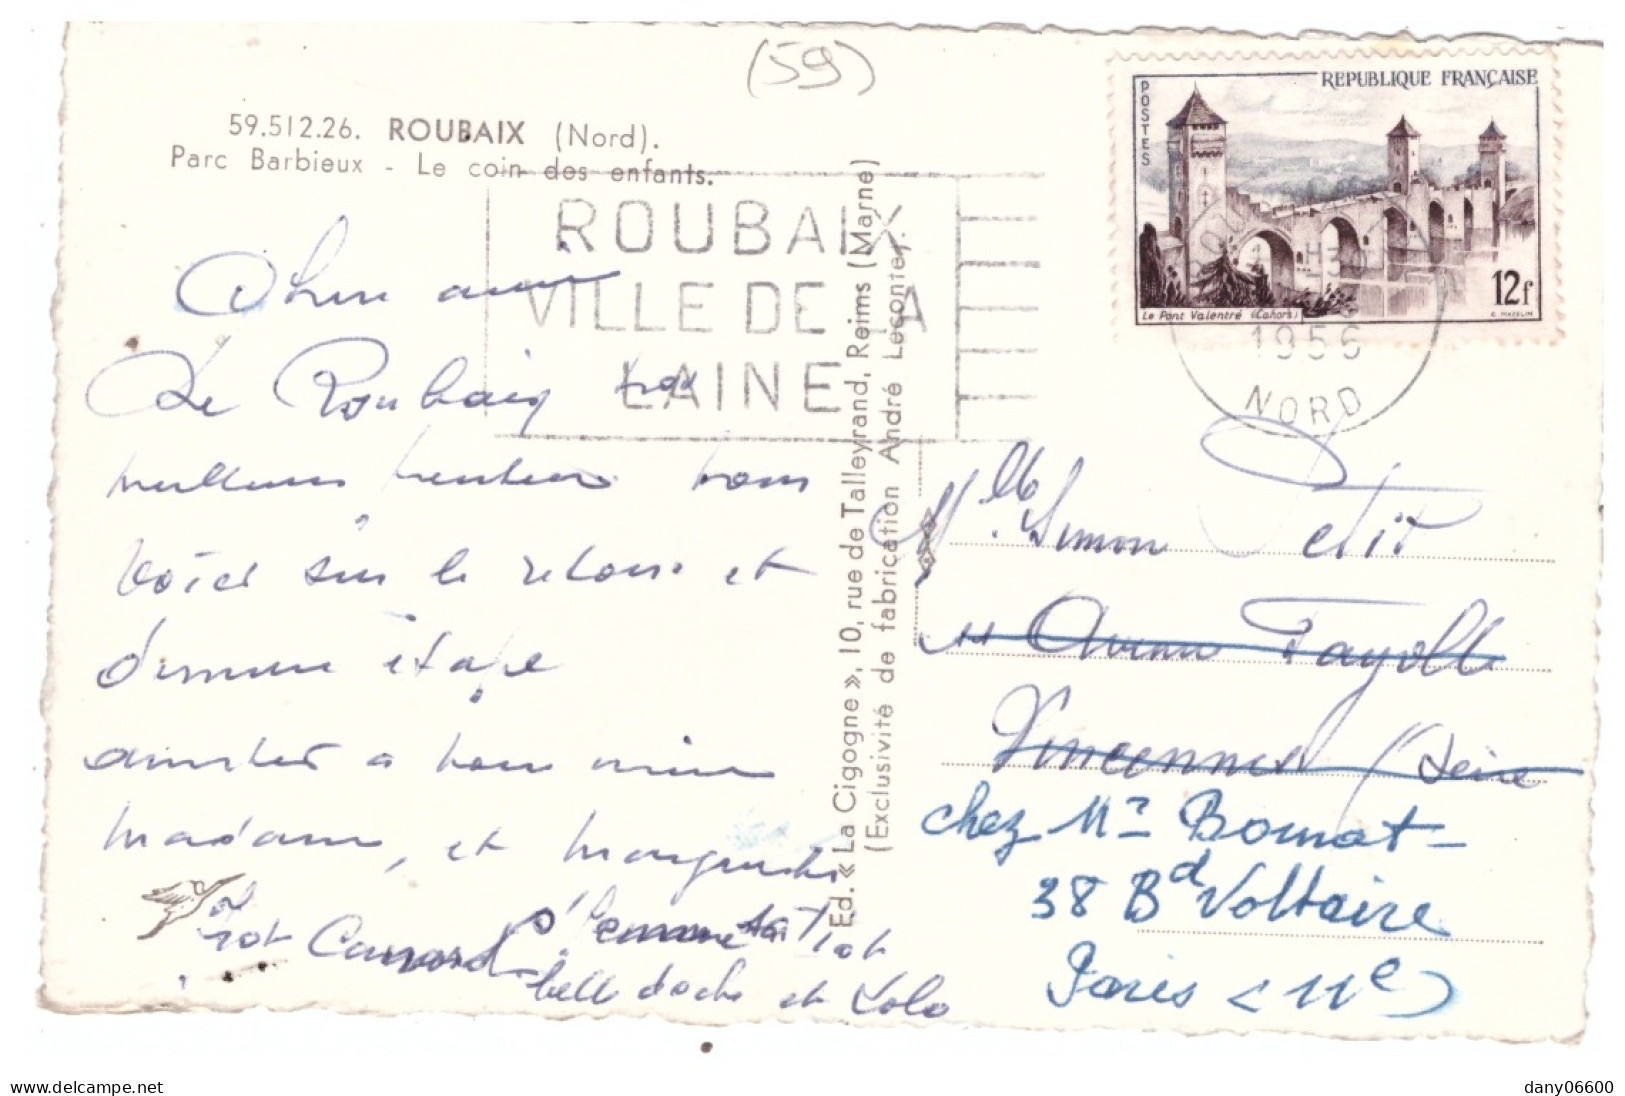 (59)
59.512.26. ROUBAIX (Nord).
Parc Barbieux - Le coin des enfants.
ROUBAIX
VILLE DE LA
LAINE
REPUBLIQUE FRANÇAISE
POSTES
12f
Le Pont Valentré (Cahors)
C. MAZELIN
1956
NORD
Ed. « La Cigogne », 10, rue de Talleyrand, Reims (Marne)
(Exclusivité de fabrication André Leconte).
Chere amie
De Roubaix nos
meilleures pensées nous
voici sur le retour et
étape
amitiés a vous
madame, et
et Lolo
Mlle Simon Petit
11 Avenue Fayolle
Vincennes (Seine
chez Mr Bomat -
38 Bd Voltaire
Paris (11e)
www.delcampe.net
dany06600